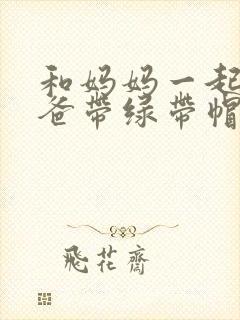 和妈妈一起
爸带绿带帽
飛花齋